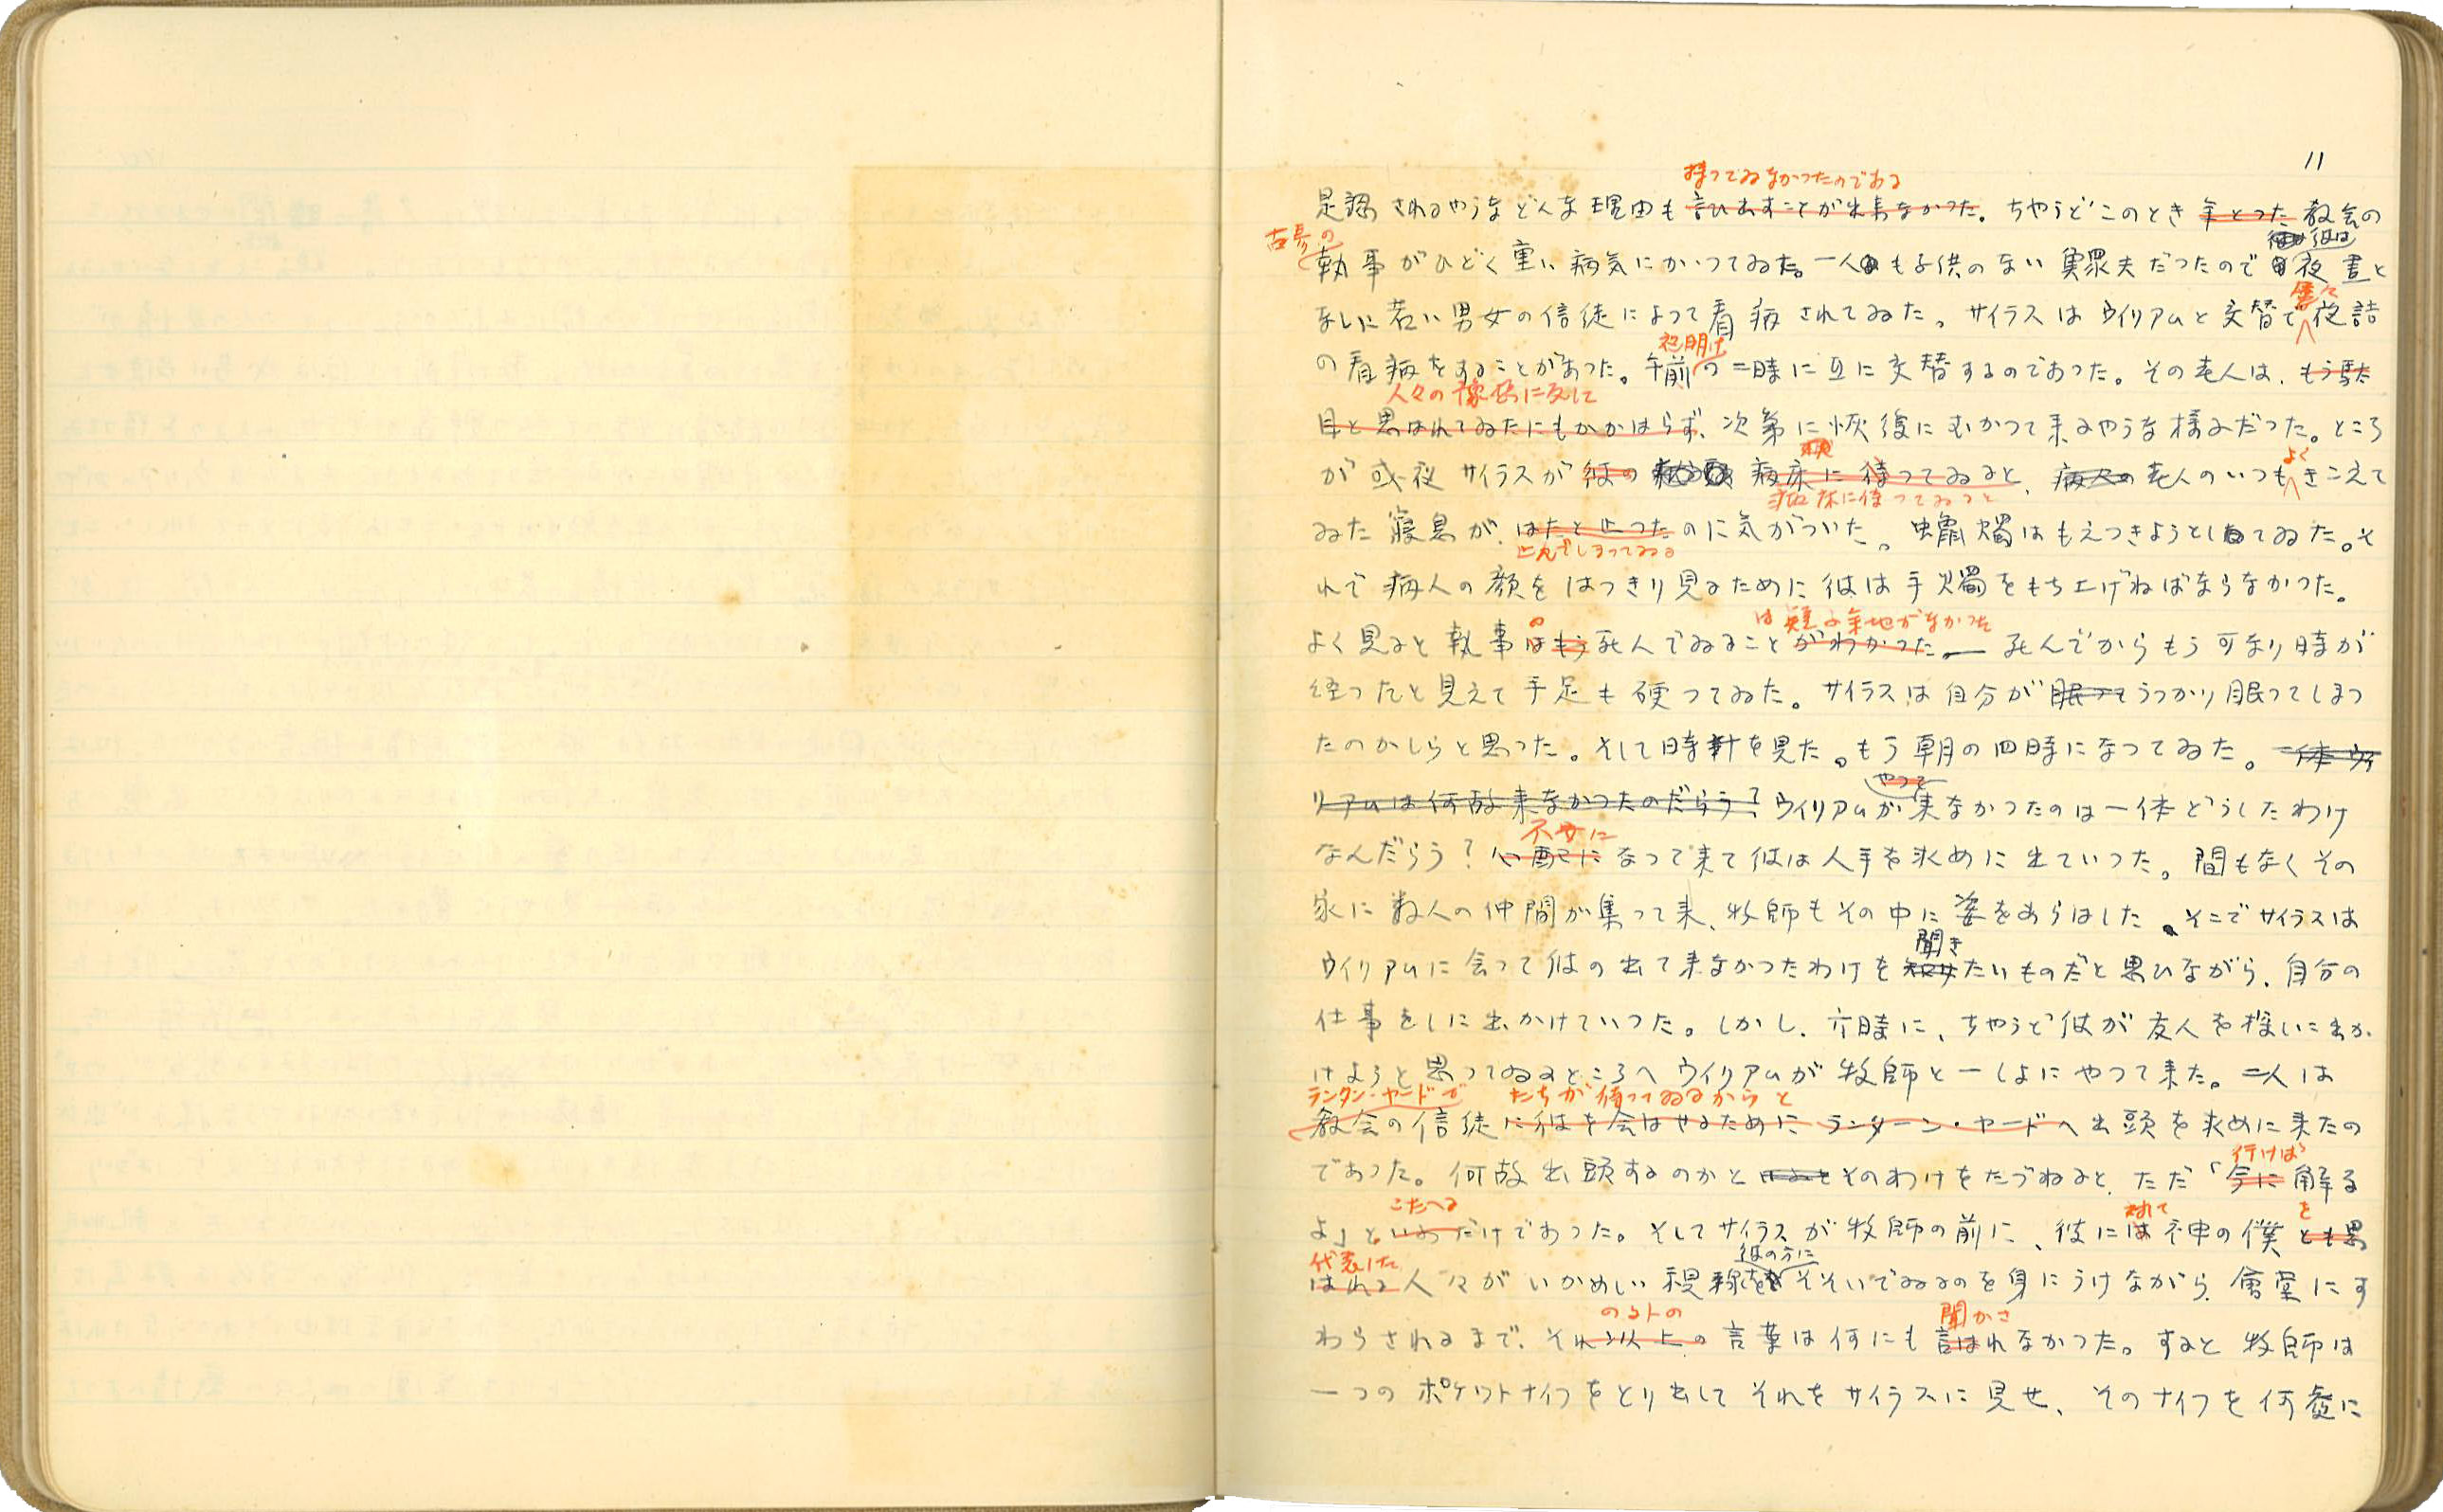 11
持つてゐなかつたのである
是認されるやうなどんな理由も言ひ出すことが出来なかつた。ちやうどこのとき年とつた教会の
古参の 彼は
執事がひどく重い病気にかゝつてゐた。一人も子供のない鰥夫だつたので夜昼と
なしに若い男女の信徒によつて看病されてゐた。サイラスはウイリアムと交替で夜詰
夜明け
の看病をすることがあつた。午前の二時に互に交替するのであつた。その老人は、もう駄
人々の予想に反して
目と思はれてゐたにもかかはらず、次第に恢復にむかつて来るやうな様子だつた。ところ
よく
が或夜サイラスが彼の病床に待つてゐると、病人の老人のいつもきこえて
病床に侍つてゐると
ゐた寝息が、はたと止つたのに気がついた。蝋燭はもえつきようとしてゐた。そ
止んでしまつてゐる
れで病人の顔をはつきり見るために彼は手燭をもち上げねばならなかつた。
の は疑ふ余地がなかつた
よく見ると執事はもう死んでゐることがわかつた。死んでからもう可なり時が
経つたと見えて手足も硬つてゐた。サイラスは自分が眠つてうつかり眠つてしまつ
たのかしらと思つた。そして時計を見た。もう朝の四時になつてゐた。一体ウイ
やつて
リアムは何故来なかつたのだらう？ウイリアムが来なかつたのは一体どうしたわけ
不安に
なんだらう？心配になつて来て彼は人手を求めに出ていつた。間もなくその
家に数人の仲間が集つて来、牧師もその中に姿をあらはした。そこでサイラスは
聞き
ウイリアムに会つて彼の出て来なかつたわけを知りたいものだと思ひながら、自分の
仕事をしに出かけていつた。しかし、六時に、ちやうど彼が友人を探しに出か
けようと思つてゐるところへウイリアムが牧師と一しよにやつて来た。二人は
ランタン・ヤードで たちが待つてゐるからと
教会の信徒に彼を会はせるためにランターン・ヤードへ出頭を求めに来たの
行けば
であつた。何故出頭するのかとそのわけをたづねると、ただ「今に解る
こたへる を
よ」といふだけであつた。そしてサイラスが牧師の前に、彼には神の僕とも思
代表した 彼の方に
はれる人々がいかめしい視線をそそいでゐるのを身にうけながら、會堂にす
のちの 聞かさ
わらされるまで、それ以上の言葉は何にも言はれなかつた。すると牧師は
一つのポケツトナイフをとり出してそれをサイラスに見せ、そのナイフを何處に